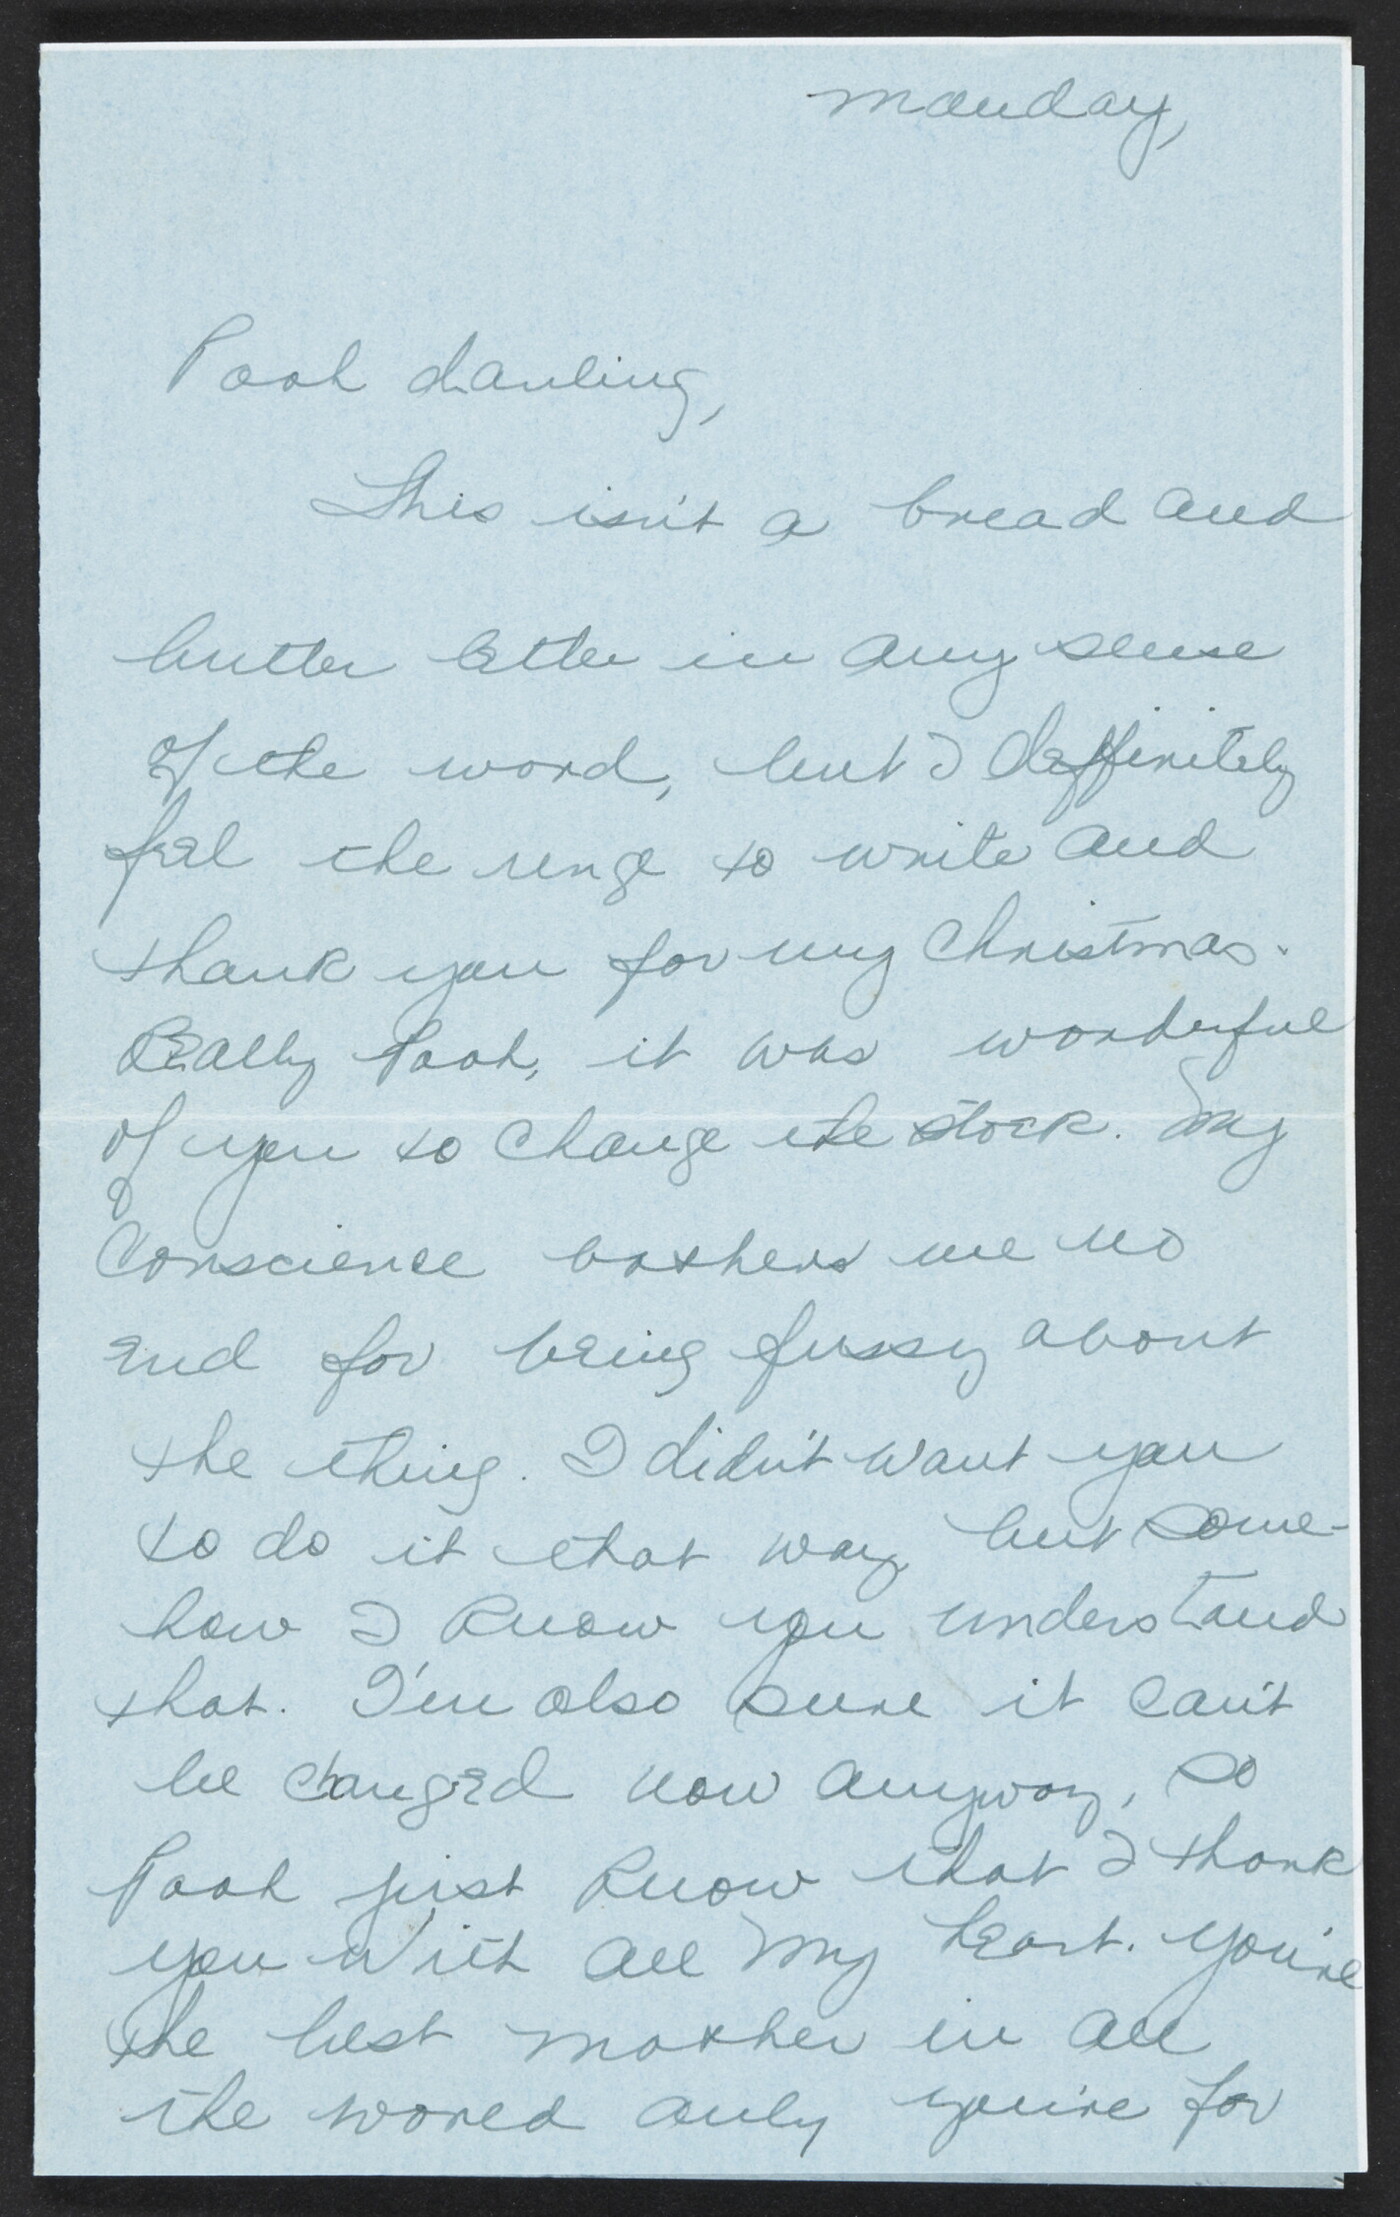 Monday,
Pooh darling,
This isn't a bread and
butter letter in any sense
of the word, but I deffinitely
feel the urge to write and
thank you for my Christmas.
Really Pooh, it was wonderful
of you to change the stock. My
conscience bothers me no
end for being fussy about
the thing. I didn't want you
to do it that way, but some-
how I know you understand
that. I'm also sure it can't
be changed now anyway, so
Pooh just know that I thank
you with all my heart. You're
the best mother in all
the world only you're for